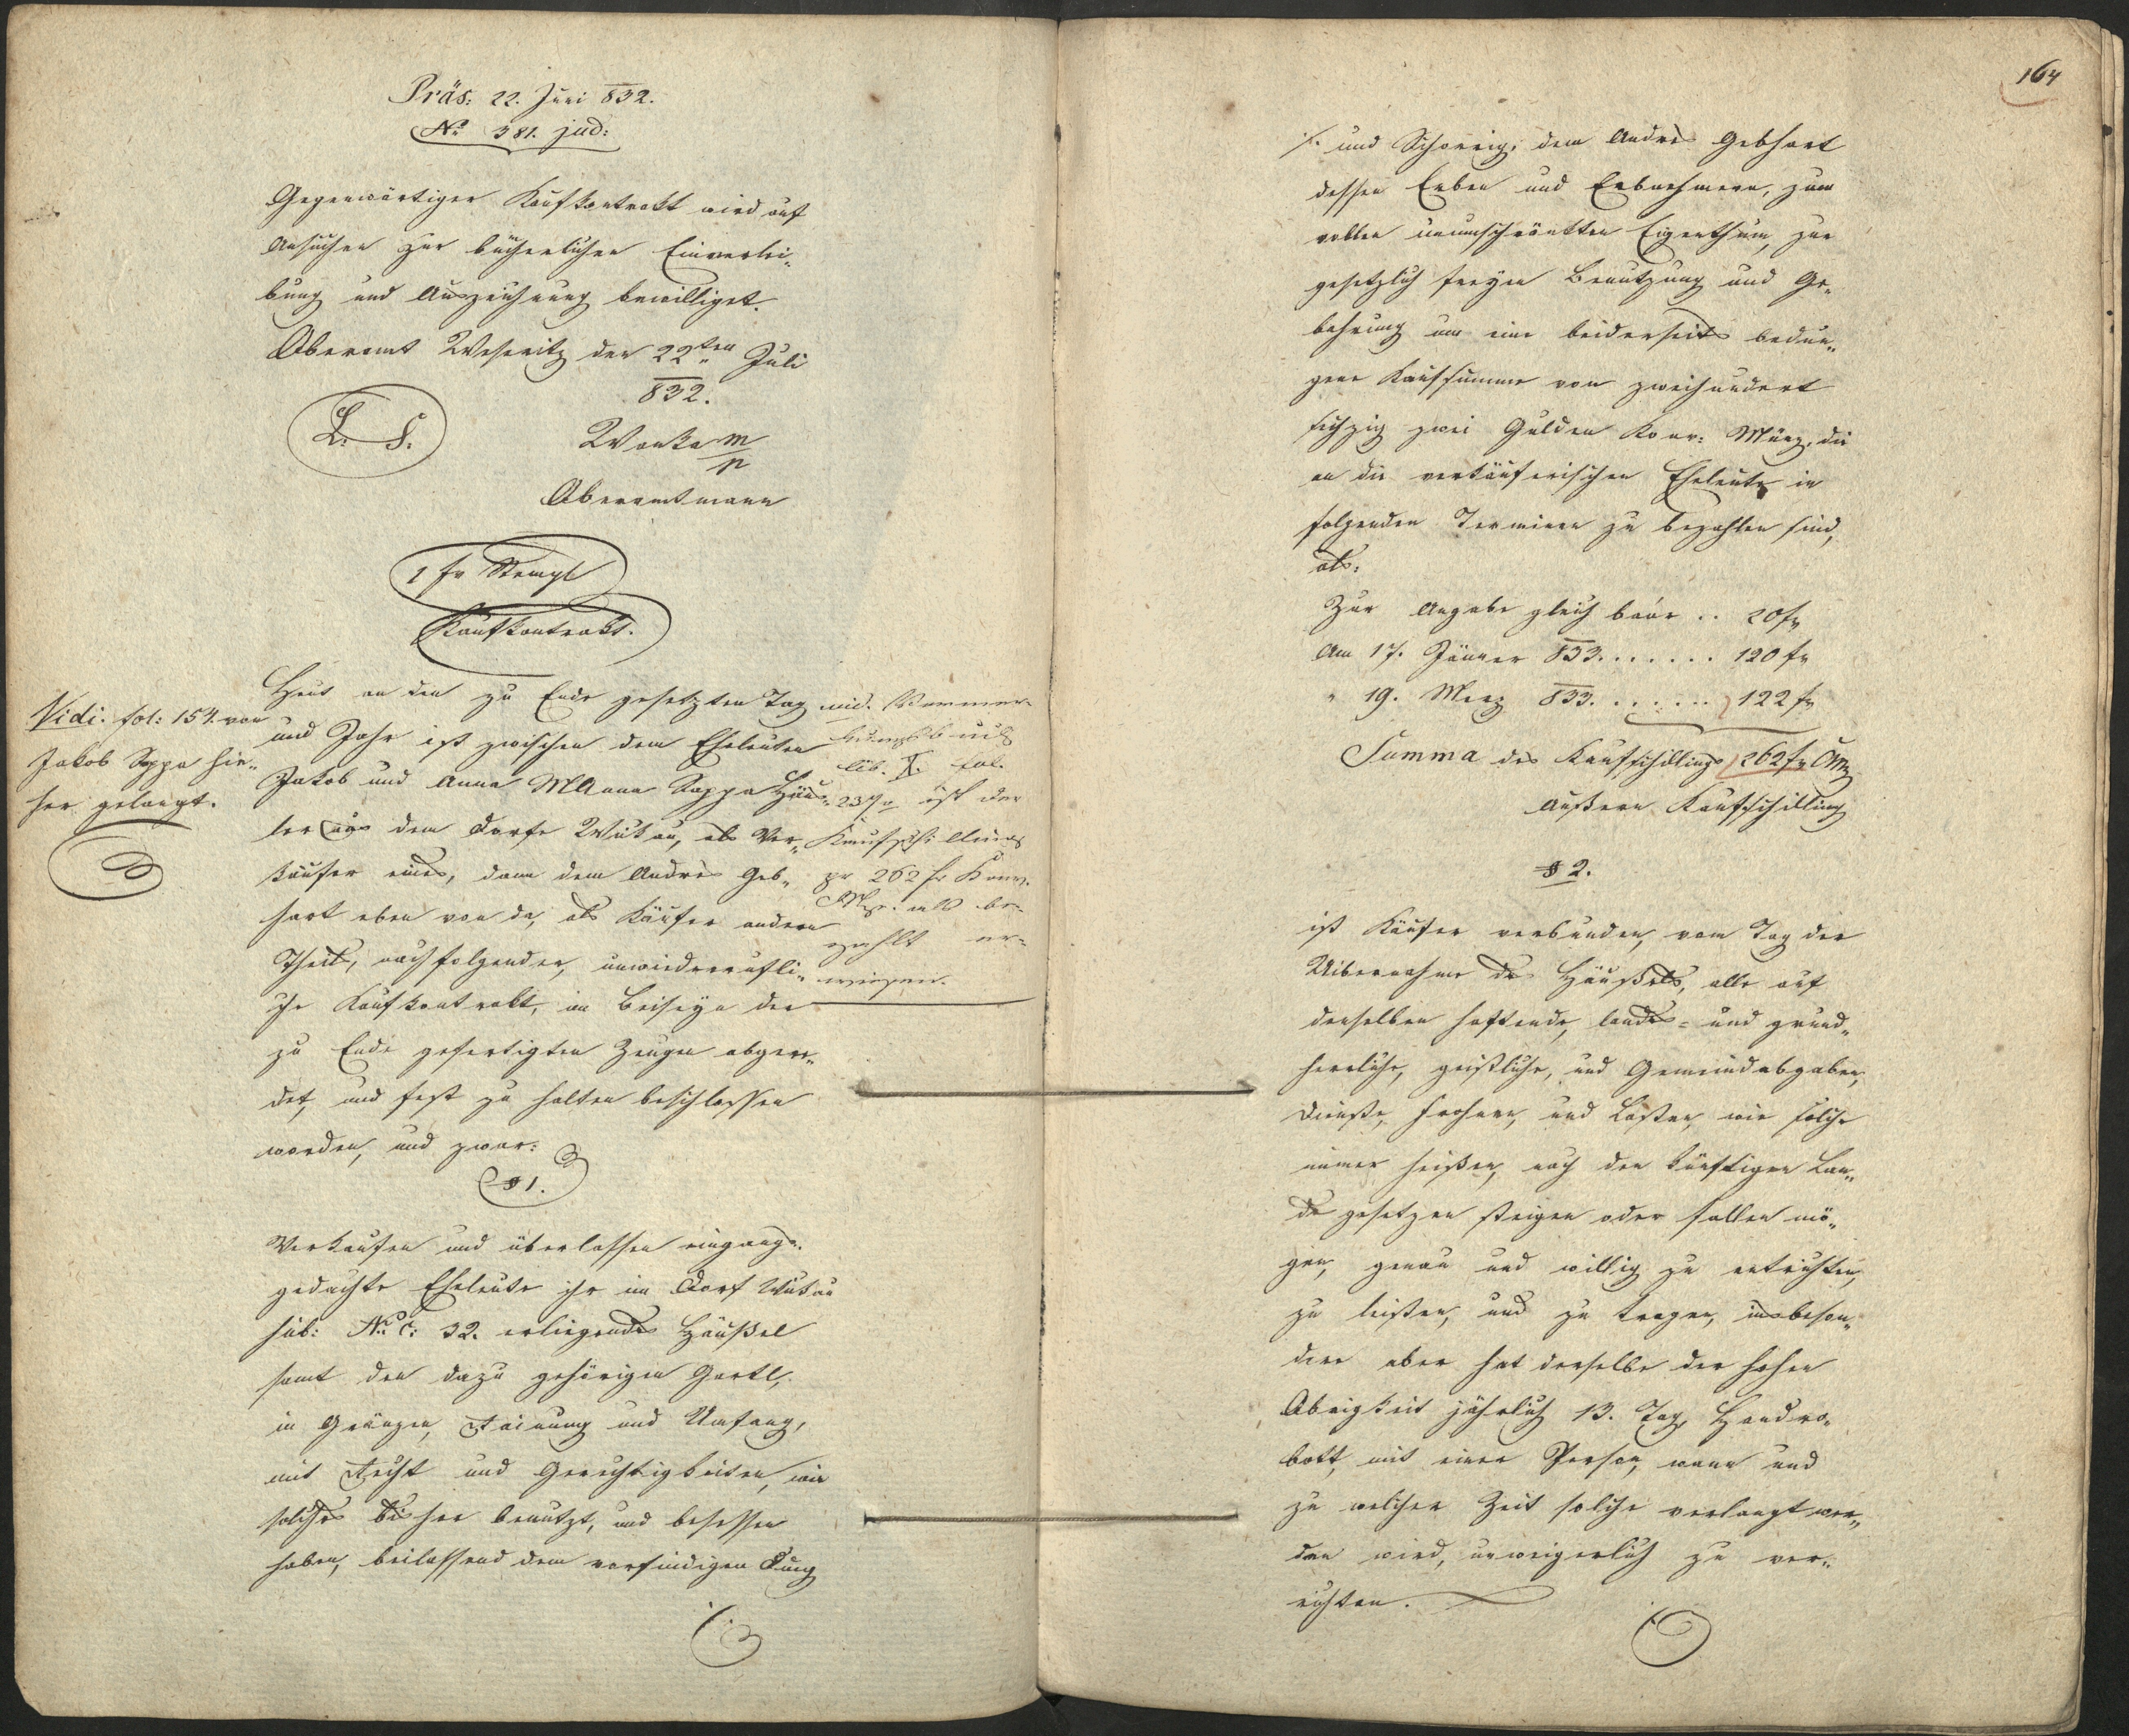 Präs: 22. Juni 832.
No 381. jud:
Gegenwärtiger Kaufkontrakt wird auf
Ansuchen zur bücherlichen Einverlei„
bung und Auszeichnung bewilliget.
Oberamt Weseritz den 22ten Juli
832.
L. S.
Wonka m/p
Oberamtmann
1 fr Stempl
Kaufkontrakt.
Heut an den zu Ende gesetzten Tag
und Jahr ist zwischen dem Eheleuten
Jakob und Anna MAnna Sappa Häus„
ler aus dem Dorfe Wutau, als Ver„
käufer eines, dann dem Andrés Geb„
hart eben von da, als Käufer andern
Theils, nachfolgender, unwiederrufli„
che Kaufkontrakt, im Beiseyn der
zu Ende gefertigten Zeugen abgere„
det, und fest zu halten beschlossen
worden, und zwar:
§ 1.
Verkaufen und überlassen eingangs
gedachte Eheleute ihr im Dorf Wutau
sub: No C: 32. erliegendes Häußel
samt den dazu gehörigen Gartl,
in Gränzen, Rainung und Umfang,
mit Recht und Gerechtigkeiten, wie
solches bisher benutzt, und besessen
haben, beilassend dem vorfindigen Dung
Vidi. fol: 154. von
Jakob Sappa hie„
her gelangt.
vid. Vormer-
kungsbuch
lib. I. fol.
237 ist der
Kaufschilling
pr 262 fr Konv.
Mz. als be-
zahlt er-
wiesen.
164
/. und Schorrig, dem Andrés Gebhart
dessen Erben und Erbnehmern, zum
vollen unumschränkten Eigenthum, zur
gesetzlich freyen Benutzung und Ge„
bahrung um eine beiderseits bedun„
gene Kaufsumme von zweihundert
sechzig zwei Gulden Konv: Münz, die
an die verkäuferischen Eheleute in
folgenden Terminen zu bezahlen sind,
als:
Zur Angabe gleich baar .. 20 fr
Am 17. Jänner 833. . . . . . . 120 fr
" 19. Merz 833. . . . . . . 122 fr
Summa des Kaufschillings 262 fr CMz
Äußern Kaufschilling
§ 2.
ist Käufer verbunden, vom Tag der
Uibernahme des Häußels, alle auf
denselben haftende, landes- und grund„
herrliche, geistliche, und Gemeindabgaben,
Dienste, Frohnen, und Lasten, wie solche
immer heißen, nach den künftigen Lan„
des gesetzen steigen oder fallen mö„
gen, genau und willig zu entrichten,
zu leisten, und zu tragen, insbeson„
dere aber hat derselbe der hohen
Obrigkeit jährlich 13. Tag, Handro„
bott, mit einer Person, wann und
zu welcher Zeit solche verlangt wer„
den wird, unweigerlich zu ver„
richten.